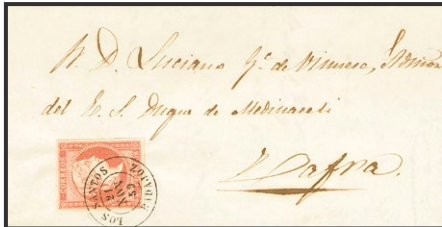 S. D. Luciano G. de Vinuesa, Admor
del E. S. Duque de Medinaceli
Zafra.
CORREOS
LOS SANTOS
BADAJOZ